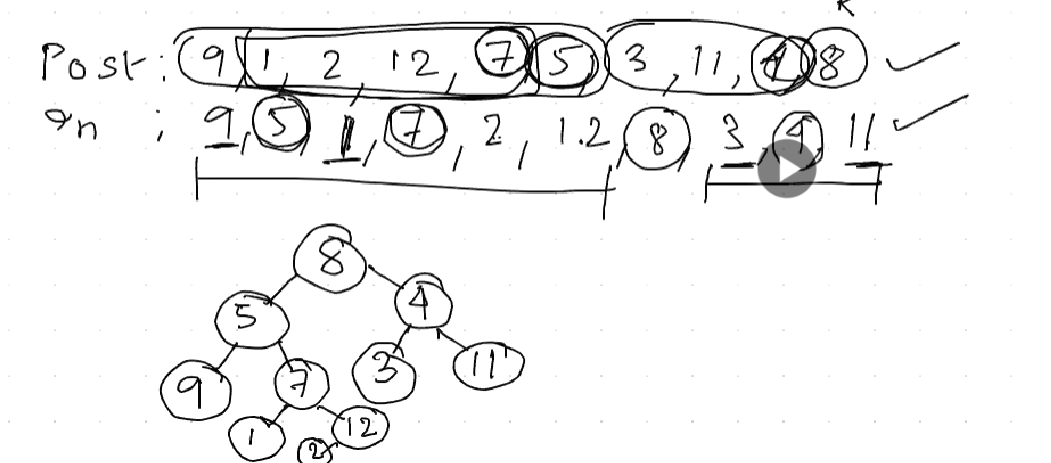 Post: 9, 1, 2, 12, 7, 5, 3, 11, 4 8
In : 9, 5 1, 7, 2, 12, 8, 3, 4 11
8
5 4
9 7 3 11
1 12
2